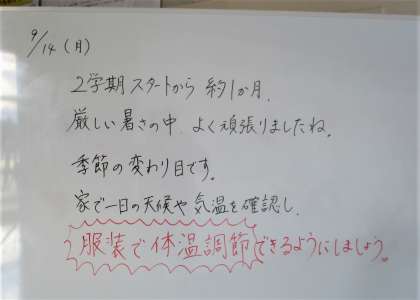 9/14(月)
2学期スタートから 約1か月.
厳しい暑さの中、よく頑張りましたね。
季節の変わり目です。
家で一日の天候や気温を確認し、
服装で体温調節できるようにしましょう。